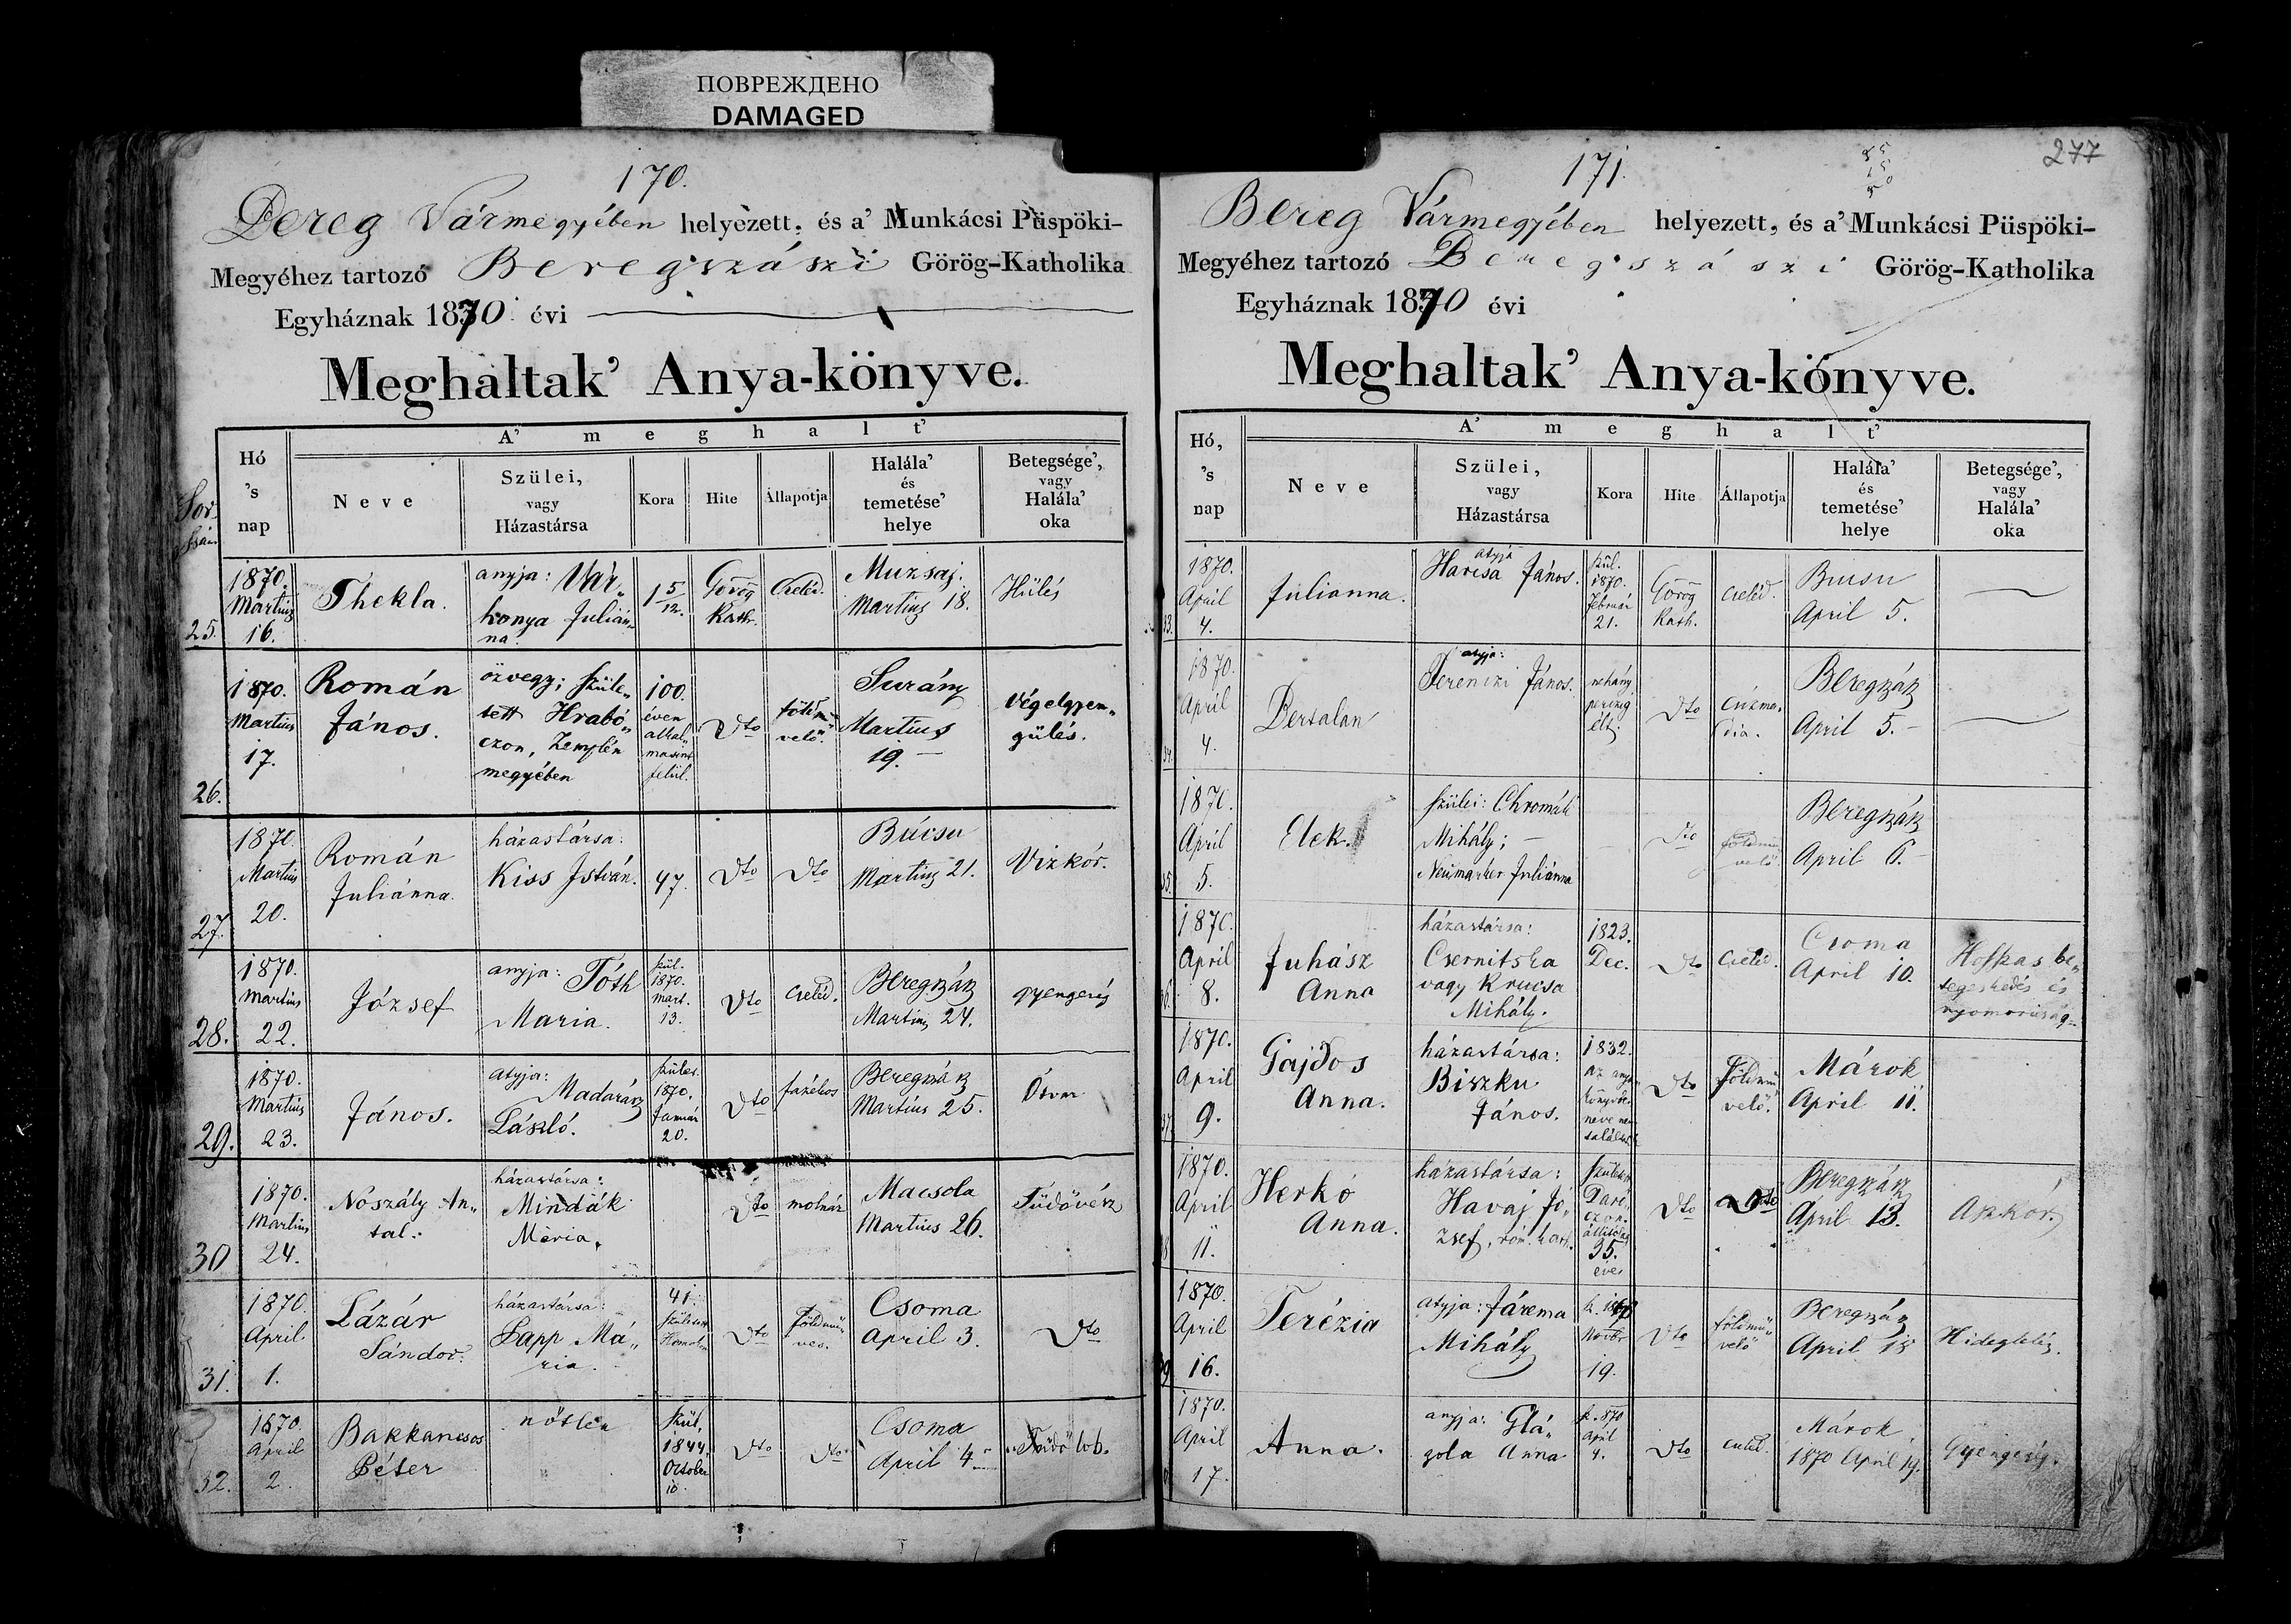 ПОВРЕЖДЕНО
DAMAGED
170.
Bereg Vármegyében helyezett, és a' Munkácsi Püspöki-
Megyéhez tartozó Beregszászi Görög-Katholika
Egyháznak 1870 évi
Meghaltak' Anya-könyve.
Sor
A' meghalt'
Hó 's nap
Neve
Szülei, vagy Házastársa
Kora
Hite
Állapotja
Halála' és temetése' helye
Betegsége', vagy Halála' oka
25. 1870. Martius 16. Thekla. anyja: Várkonya Juliánna 1 5/12. Görög Kath. Cseléd. Muzsaj. Martius 18. Hülés
26. 1870. Martius 17. Román János. özvegy; szüle„ tett Hrabó„ czon, Zemplén megyében 100. éven alkal„ masint felül. dto földm velő. Surány Martius 19. Végelgyen„ gülés.
27. 1870. Martius 20. Román Juliánna. házastársa: Kiss István. 47. dto dto Búcsu Martius 21. Vizkór.
28. 1870. Martius 22. József anyja: Tóth Maria. szül. 1870. Mart. 13. dto cseléd. Beregszász Martius 24. gyengeség
29. 1870. Martius 23. János. atyja: Madarász László. szület. 1870. Január 20. dto fazekas Beregszász Martius 25.
30 1870. Martius 24. Nószály An„ tal. házastársa: Mindák Mária. dto molnár Macsola Martius 26. Tüdővész
31. 1870. April 1. Lázár Sándor. házastársa: Papp Má„ ria. 41. dto földmű ves. Csoma April 3. dto
32. 1870. April 2. Bakkancsos Péter nőtlen szül. 1844. October 10. dto dto Csoma April 4. Tüdőlob.
171.
277
Bereg Vármegyében helyezett, és a' Munkácsi Püspöki-
Megyéhez tartozó Beregszászi Görög-Katholika
Egyháznak 1870 évi
Meghaltak' Anya-könyve.
A' meghalt'
Hó, 's nap
Neve
Szülei, vagy Házastársa
Kora
Hite
Állapotja
Halála' és temetése' helye
Betegsége', vagy Halála' oka
33. 1870. April 4. Julianna. atyja Harisa János. szül. 1870. Február 21. Görög Kath. cseléd. Bucsu April 5.
34. 1870. April 4. Bertalan atyja: Ferenczi János. nehány perczig élt. dto csizma„ dia. Beregszász April 5.
35. 1870. April 5. Elek. szülei: Chromák Mihály; Neumarker Juliánna dto földmű velő. Beregszász April 6.
36. 1870. April 8. Juhász Anna házastársa: Csernitska vagy Krucsa Mihály. 1823. Dec. dto cseléd. Csoma April 10. Hosszas be„ tegeskedés és nyomoruság
37. 1870. April 9. Gajdos Anna. házastársa: Biszku János. 1832. az anya könyvben neve nem dto földmű velő. Márok April 11.
38 1870. April 11. Herkó Anna. házastársa: Havaj Jó„ zsef, róm. kath. 35. éves dto dto Beregszász April 13. Aszkór.
39 1870. April 16. Terézia atyja: Járema Mihály Novbr 19. dto földmű velő Beregszász April 18 Hideglelés.
1870. April 17. Anna. anyja: Glá„ gola Anna sz. 870 April 4. dto cseléd. Márok 1870 April 19. Gyengeség.